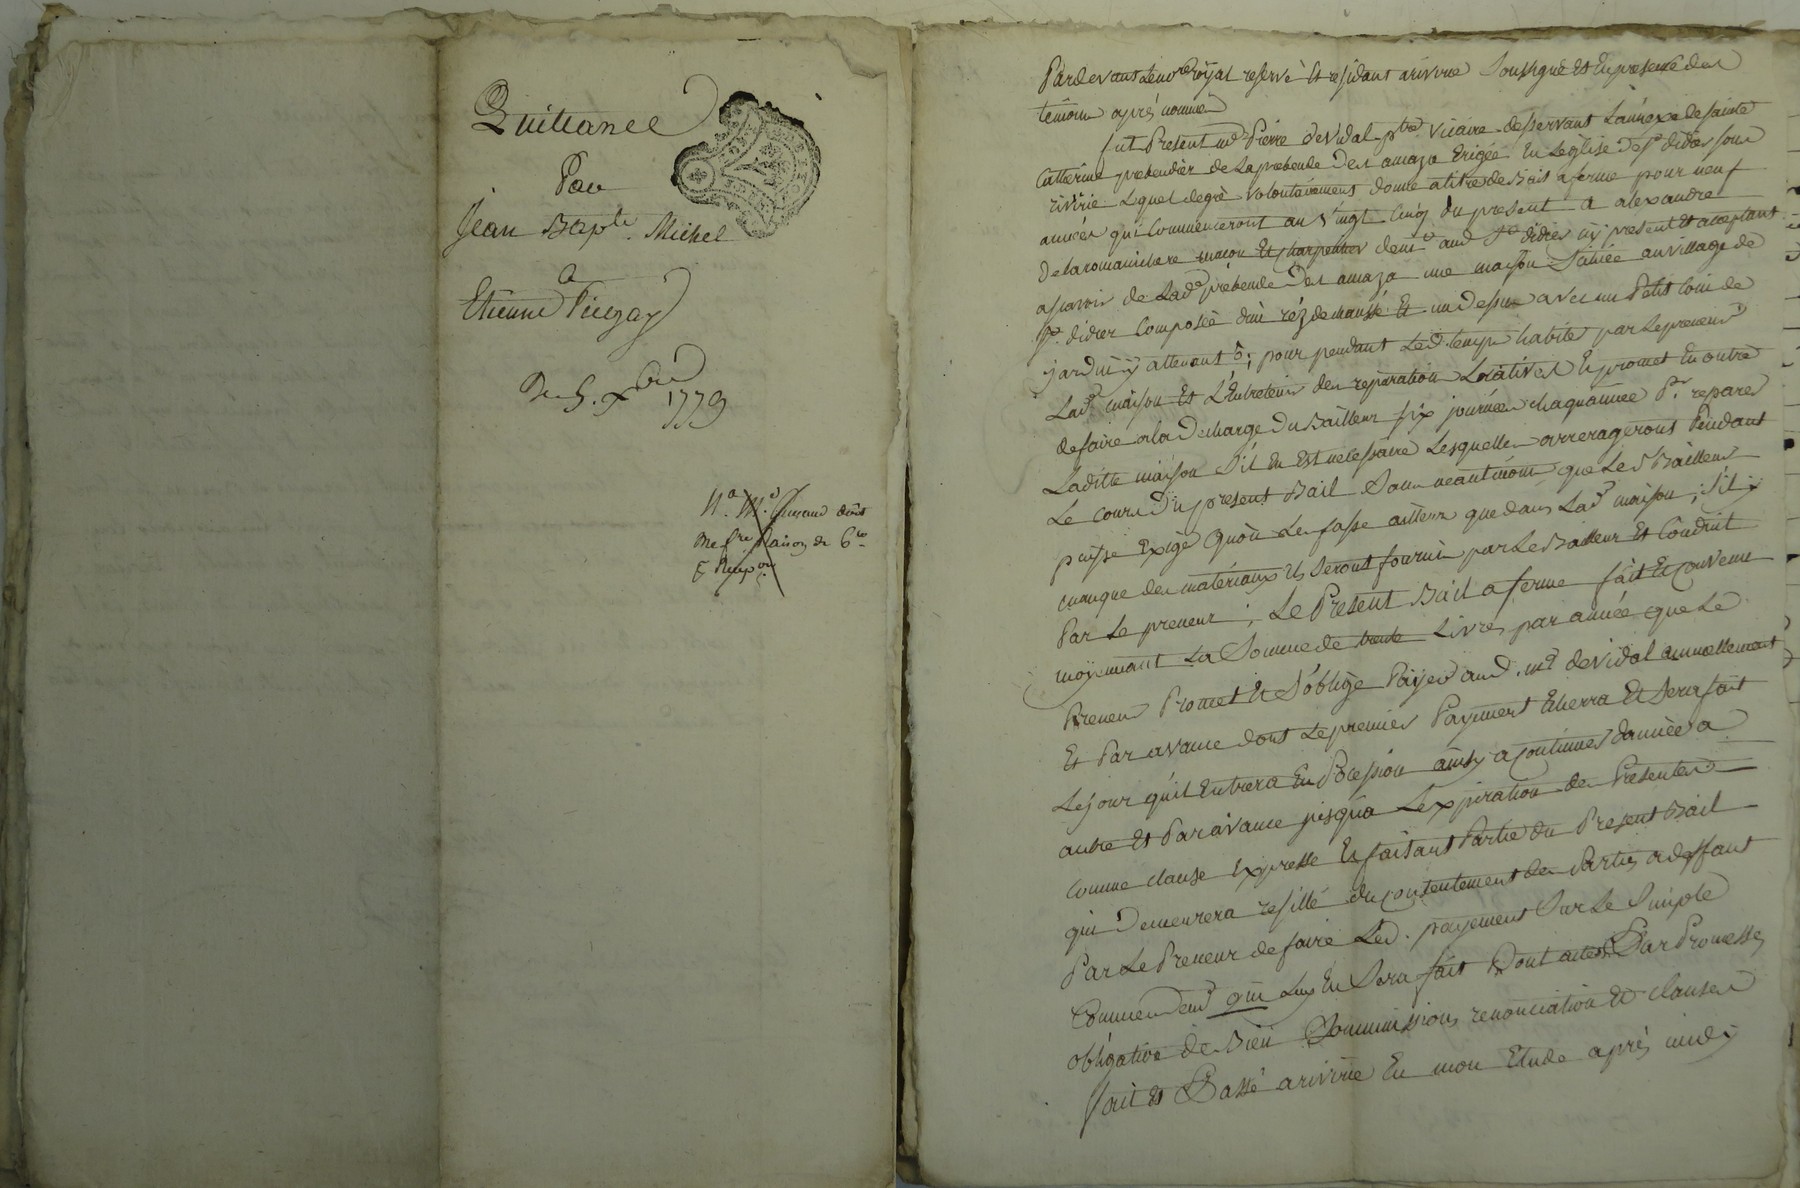 Quittance
Par
Jean Bapte. Michel
a
Etienne
Du 5. xbre 1779
Pardevant le nore royal reservé et residant a riverie soussigné et en presence des
temoins après nommés
fut Present mre Pierre devidal ptre vicaire desservant L'annexe de sainte
Catherine prebendier de La prebende des amaza Erigée En Leglise de st didier sous
riverie Lequel de gré volontairement donne a titre de Bail a ferme pour neuf
années qui Commenceront au vingt cinq du present a alexandre
delaromanichere macon et charpentier demt aud st didier icy present et acceptant
a scavoir de Lade prébende des amaza une maison Située au village de
st didier Composée d'un réz de chaussé et un dessus avec un Petit Coin de
jardin y attenant ; pour pendant Led. temps habiter par Le preneur
Lade maison et L'Entretenir des reparations Locatives Et promet En outre
de faire a la decharge du Bailleur six journées chaque année Pr reparer
Laditte maison s'il En Est necessaire Lesquelles arrerageront Pendant
Le cours du present Bail Sans neantmoins que Led Bailleur
puisse Exiger qu'on Les fasse ailleurs que dans Lade maison ; s'il y
manque des matériaux ils Seront fournis par Le Bailleur et Conduit
Par Le preneur ; Le Present Bail a ferme fait et convenu
moyennant La Somme de trente Livres par année que Le
Preneur Promet et S'oblige Payer aud. mre devidal annuellement
Et Par avance dont Le premier Payement Echerra Et Sera fait
Le jour qu'il Entrera En Possession ainsy a continuer d'année a
autre Et Par avance jusqu'a Lexpiration des Presentes
Comme clause Expresse Et faisant Partie du Present Bail
qui demeurera resillé du consentement des Parties a deffaut
Par Le Preneur de faire Led. payement Sur Le Simple
Commendemt qui Luy En Sera fait Dont actes Par Promesses
obligation de Bien Soummissions, renonciation Et clauses
fait et Passé a riverie En mon Etude après midy